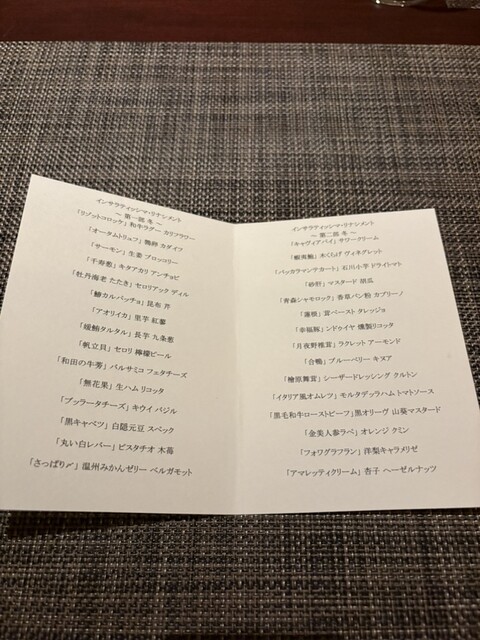 インサラティッシマ・リナシメント
～ 第一部 冬 ～
「リゾットコロッケ」 和牛ラグー カリフラワー
「オータムトリュフ」 鶉卵 カダイフ
「サーモン」 生姜 ブロッコリー
「千寿葱」 キタアカリ アンチョビ
「牡丹海老 たたき」 セロリアック ディル
「鰤カルパッチョ」 昆布 芹
「アオリイカ」 里芋 紅蓼
「鮪タルタル」 長芋 九条葱
「帆立貝」 セロリ 檸檬ピール
「和田の牛蒡」 バルサミコ フェタチーズ
「無花果」 生ハム リコッタ
「ブッラータチーズ」 キウイ バジル
「黒キャベツ」 白隠元豆 スペック
「丸い白レバー」 ピスタチオ 木苺
「さっぱり〆」 温州みかんゼリー ベルガモット
インサラティッシマ・リナシメント
～ 第二部 冬 ～
「キャヴィアパイ」 サワークリーム
「蝦夷鮑」 あくるば ヴィネグレット
「バッカラマンテカート」 石川小芋 ドライトマト
「砂肝」 マスタード 胡瓜
「青森シャモロック」 香草パン粉 カプリーノ
「蓮根」 茸ペースト タレッジョ
「幸福豚」 ンドゥイヤ 燻製リコッタ
「月夜野椎茸」 ラクレット アーモンド
「合鴨」 ブルーベリー キヌア
「檜原舞茸」 シーザードレッシング クルトン
「イタリア風オムレツ」 モルタデッラハム トマトソース
「黒毛和牛ローストビーフ」 黒オリーヴ 山葵マスタード
「金美人参ラペ」 オレンジ クミン
「フォワグラフラン」 洋梨キャラメリゼ
「アマレッティクリーム」 杏子 ヘーゼルナッツ